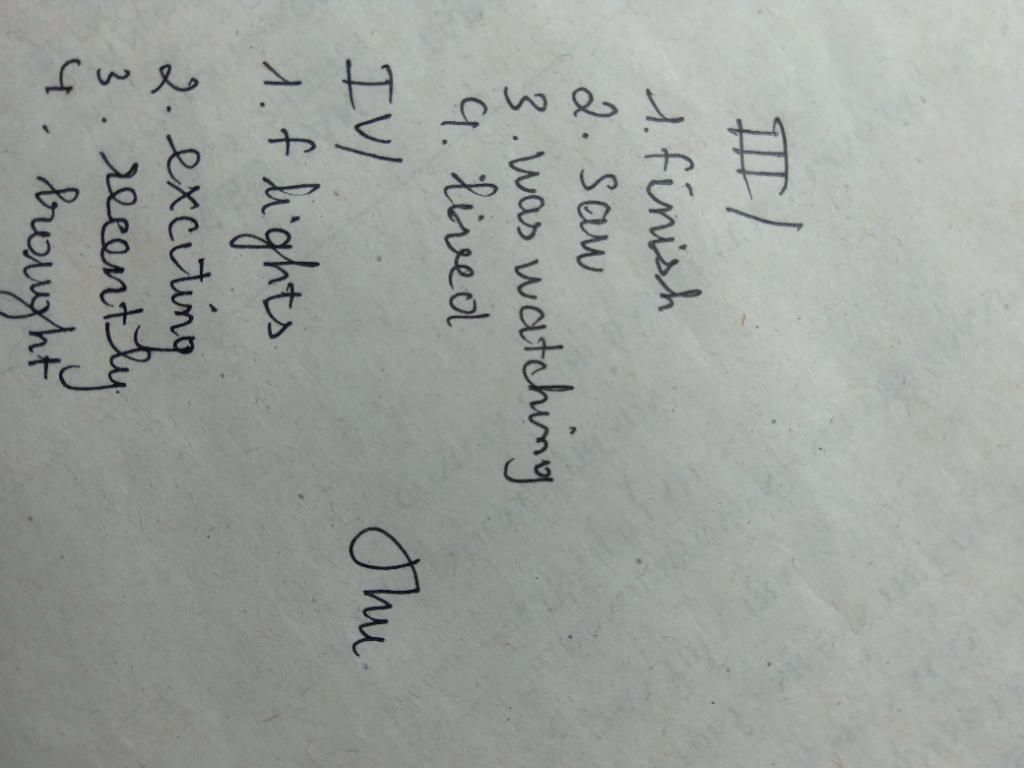 III/
1. finish
2. saw
3. was watching
4. lived
IV/
1. flights
2. exciting
3. recently
4. brought
Thu